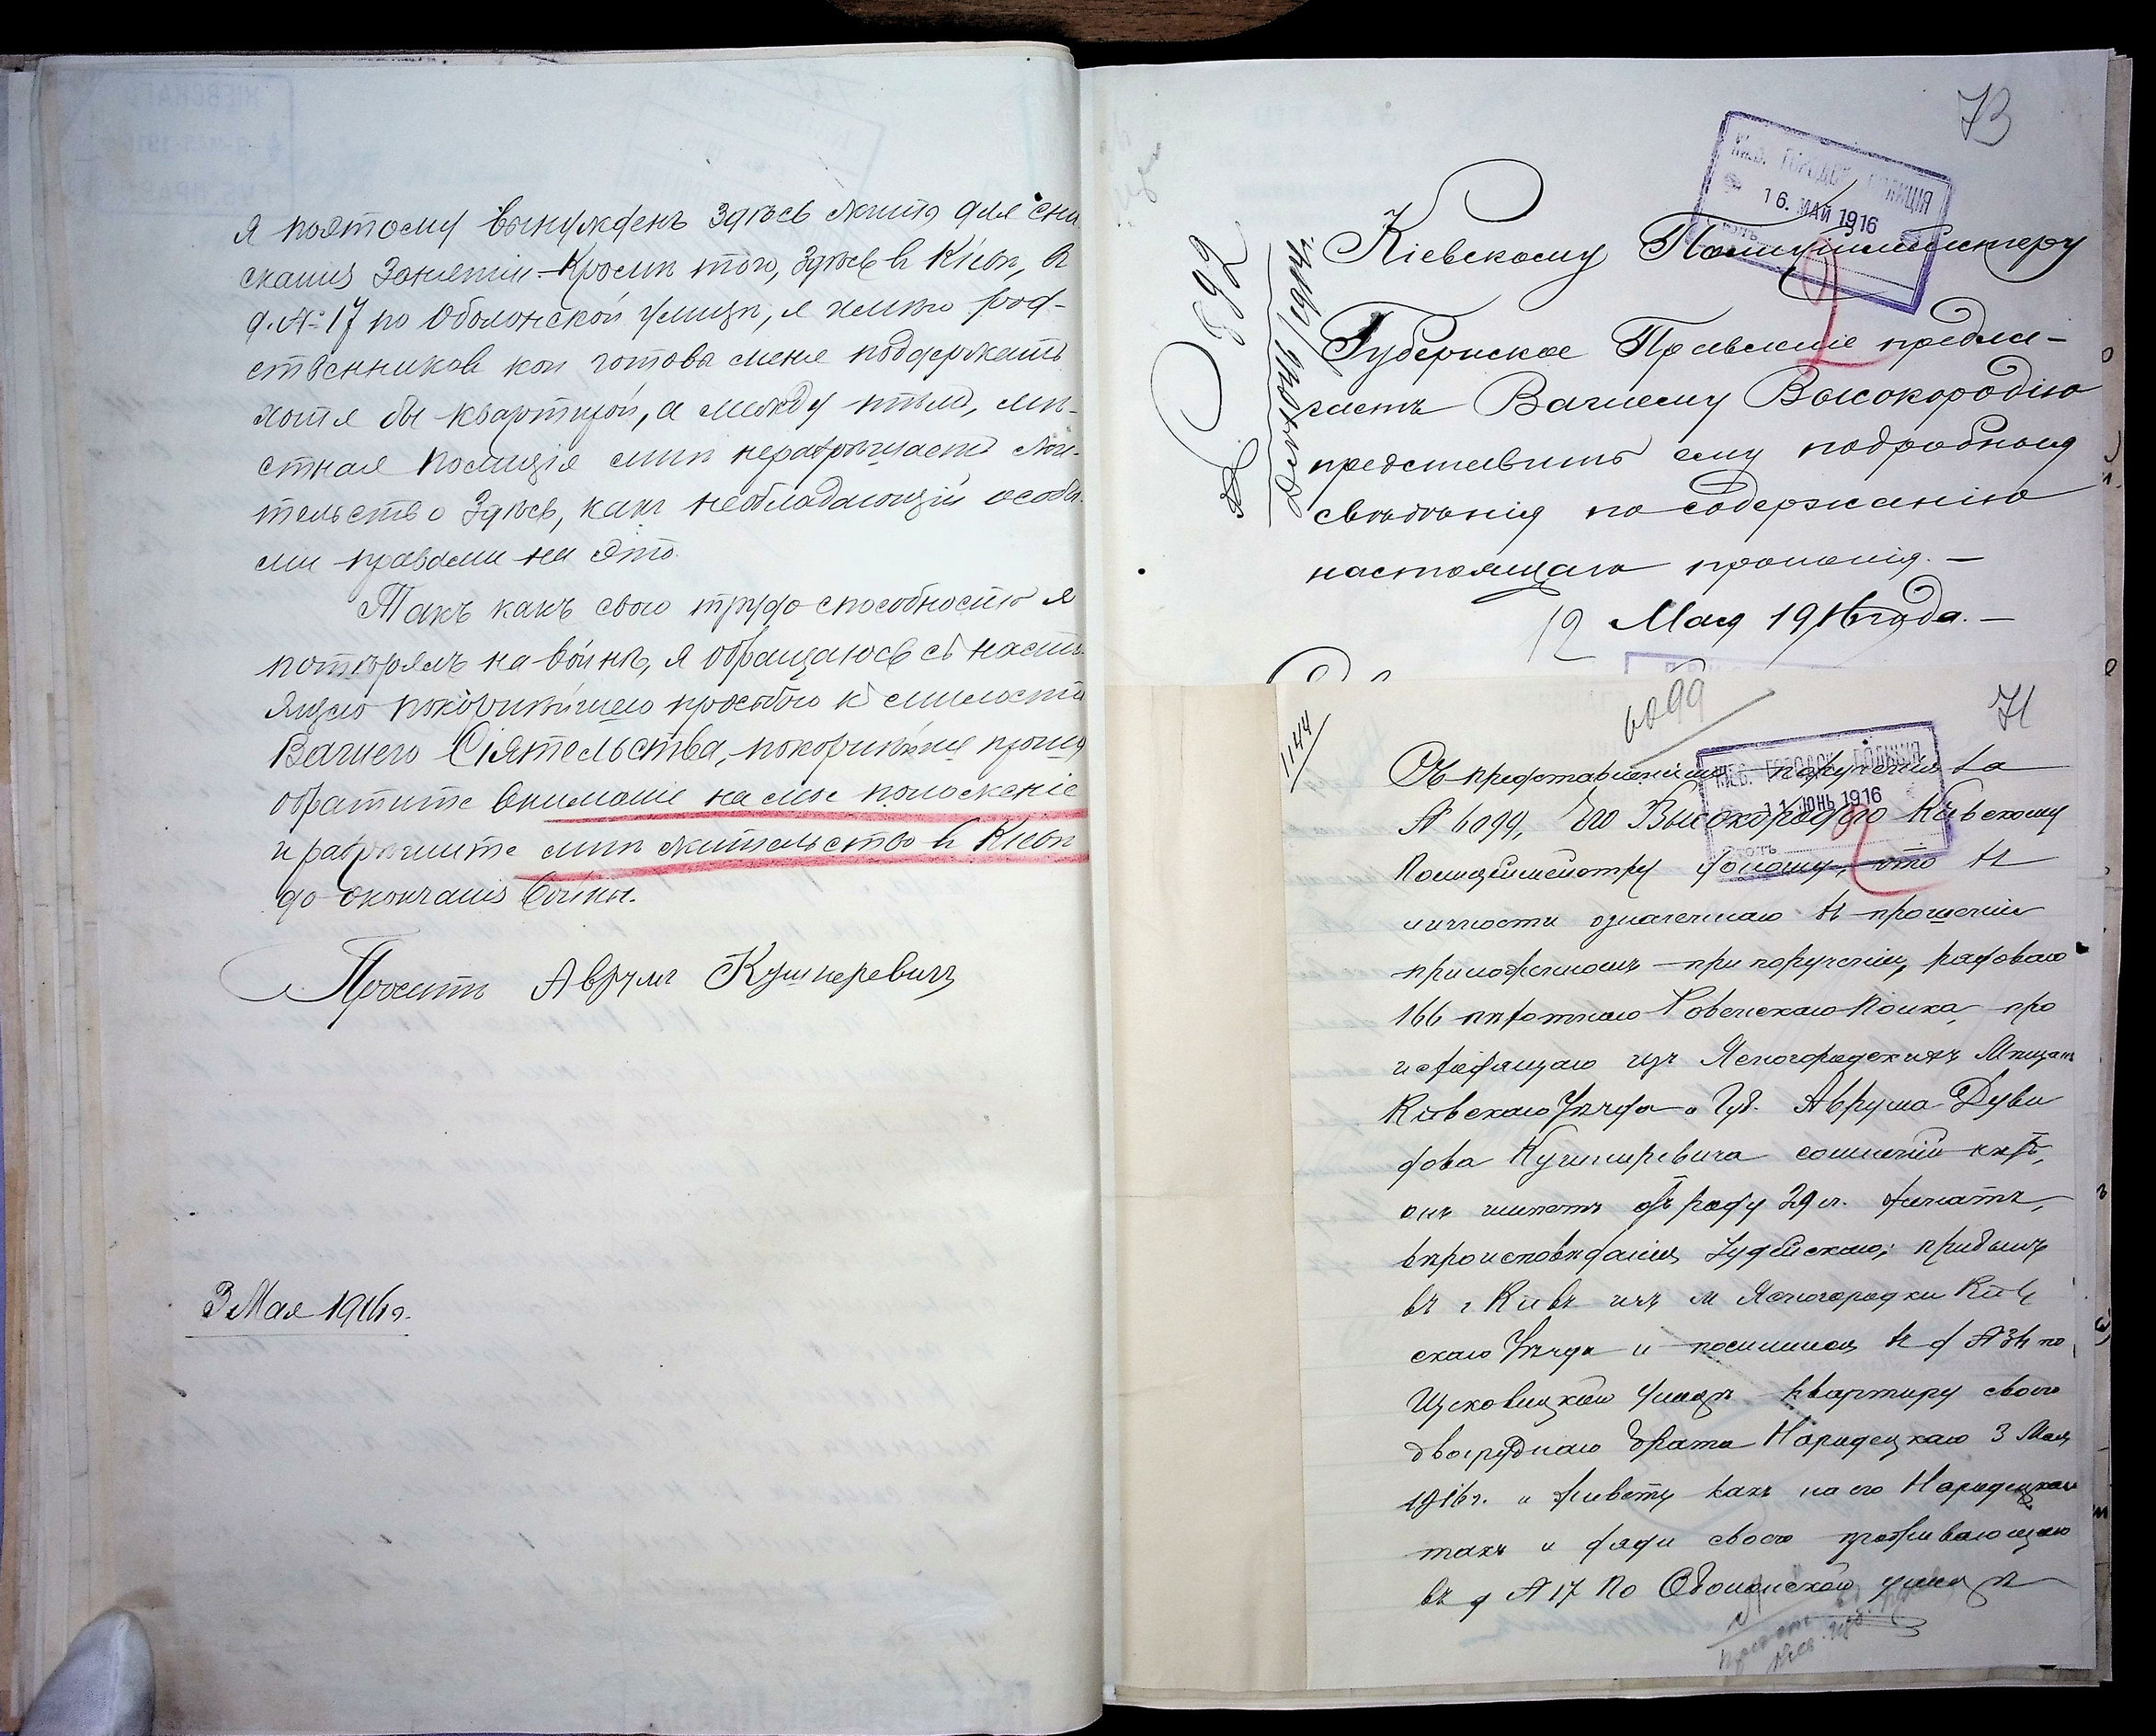 я поэтому вынужденъ здѣсь жить для сни
сканія занятій. Кромѣ того, здѣсь въ Кіевѣ, в
д. № 17 по Оболонской улицѣ, я имѣю род-
ственниковъ кои готовы меня поддержать
хотя бы квартирой, а между тѣмъ, мѣ-
стная полиція мнѣ неразрѣшаетъ жи-
тельство здѣсь, какъ необладающій особы
ми правами на это.
Такъ какъ свою трудоспособность я
потѣрялъ на войнѣ, я обращаюсь съ насто
ящею покорнѣйшею просьбою къ милости
Вашего Сіятельства, покорнѣйше прошу
обратите вниманіе на мое положеніе
и разрѣшите мнѣ жительство въ Кіевѣ
до окончанія войны.
Проситъ Аврумъ Кушнеревичъ
3 Мая 1916 г.
73
КІЕВ. ГОРОДСК. ПОЛИЦІЯ
16. МАЙ 1916
Кіевскому Полицiймейстеру
Губернское Правленіе предла-
гаетъ Вашему Высокородію
представить ему подробныя
свѣдѣнія по содержанію
настоящаго прошенія. —
12 Мая 1916 года. —
6099
71
1144
КІЕВ. ГОРОДСК. ПОЛИЦІЯ
11 ІЮНЬ 1916
Съ представленіемъ порученія за
№ 6099, Его Высокородію Кіевскому
Полиціймейстру доношу, что въ
личности означеннаго въ прошеніи
приложенномъ при порученіи, рядоваго
166 пѣхотнаго Ровенскаго Полка, про
исходящаго изъ Ясногородскихъ Мѣщанъ
Кіевскаго Уѣзда и Губ. Аврума Дуви
дова Кушнеревича сомнѣній нѣтъ,
онъ имѣетъ отъ роду 29 л. женатъ,
вѣроисповѣданія Іудейскаго; прибылъ
въ г. Кіевъ изъ м Ясногородки Кіев
скаго Уѣзда и поселился въ д № 34 по
Щековицкой улицѣ квартиру своего
двоюроднаго брата Народецкаго 3 Мая
1916 г. и живетъ какъ на его Народецкаго
такъ и дяди своего проживающаго
въ д № 17 по Оболонской улицѣ